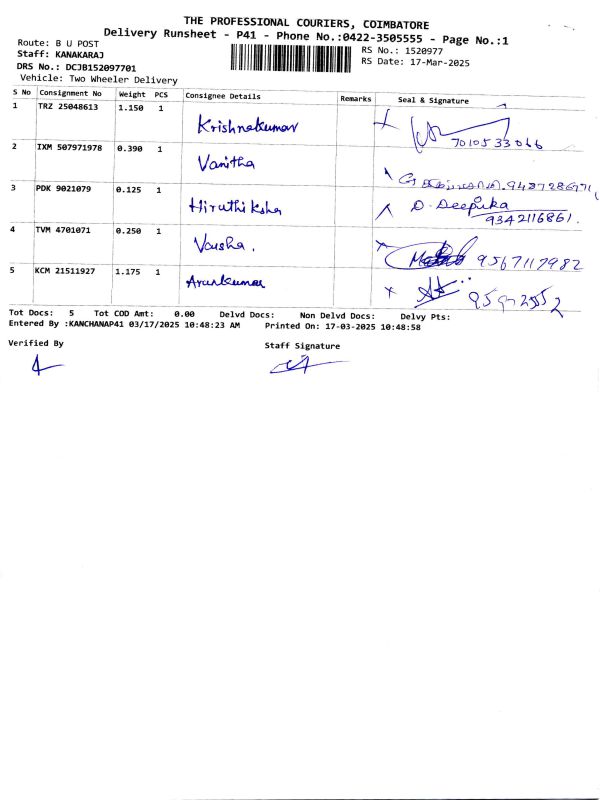 THE PROFESSIONAL COURIERS, COIMBATORE
Delivery Runsheet - P41 - Phone No.:0422-3505555 - Page No.:1
Route: B U POST
RS No.: 1520977
Staff: KANAKARAJ
RS Date: 17-Mar-2025
DRS No.: DCJB152097701
Vehicle: Two Wheeler Delivery
S No Consignment No Weight PCS Consignee Details Remarks Seal & Signature
1 TRZ 25048613 1.150 1 Krishnakumar 7010533066
2 IXM 507971978 0.390 1 Vanitha
3 PDK 9021079 0.125 1 Hiruthiksha D. Deepika
9342116861.
4 TVM 4701071 0.250 1 Varsha. 9567117982
5 KCM 21511927 1.175 1 Arunkumar
Tot Docs: 5 Tot COD Amt: 0.00 Delvd Docs: Non Delvd Docs: Delvy Pts:
Entered By :KANCHANAP41 03/17/2025 10:48:23 AM Printed On: 17-03-2025 10:48:58
Verified By Staff Signature